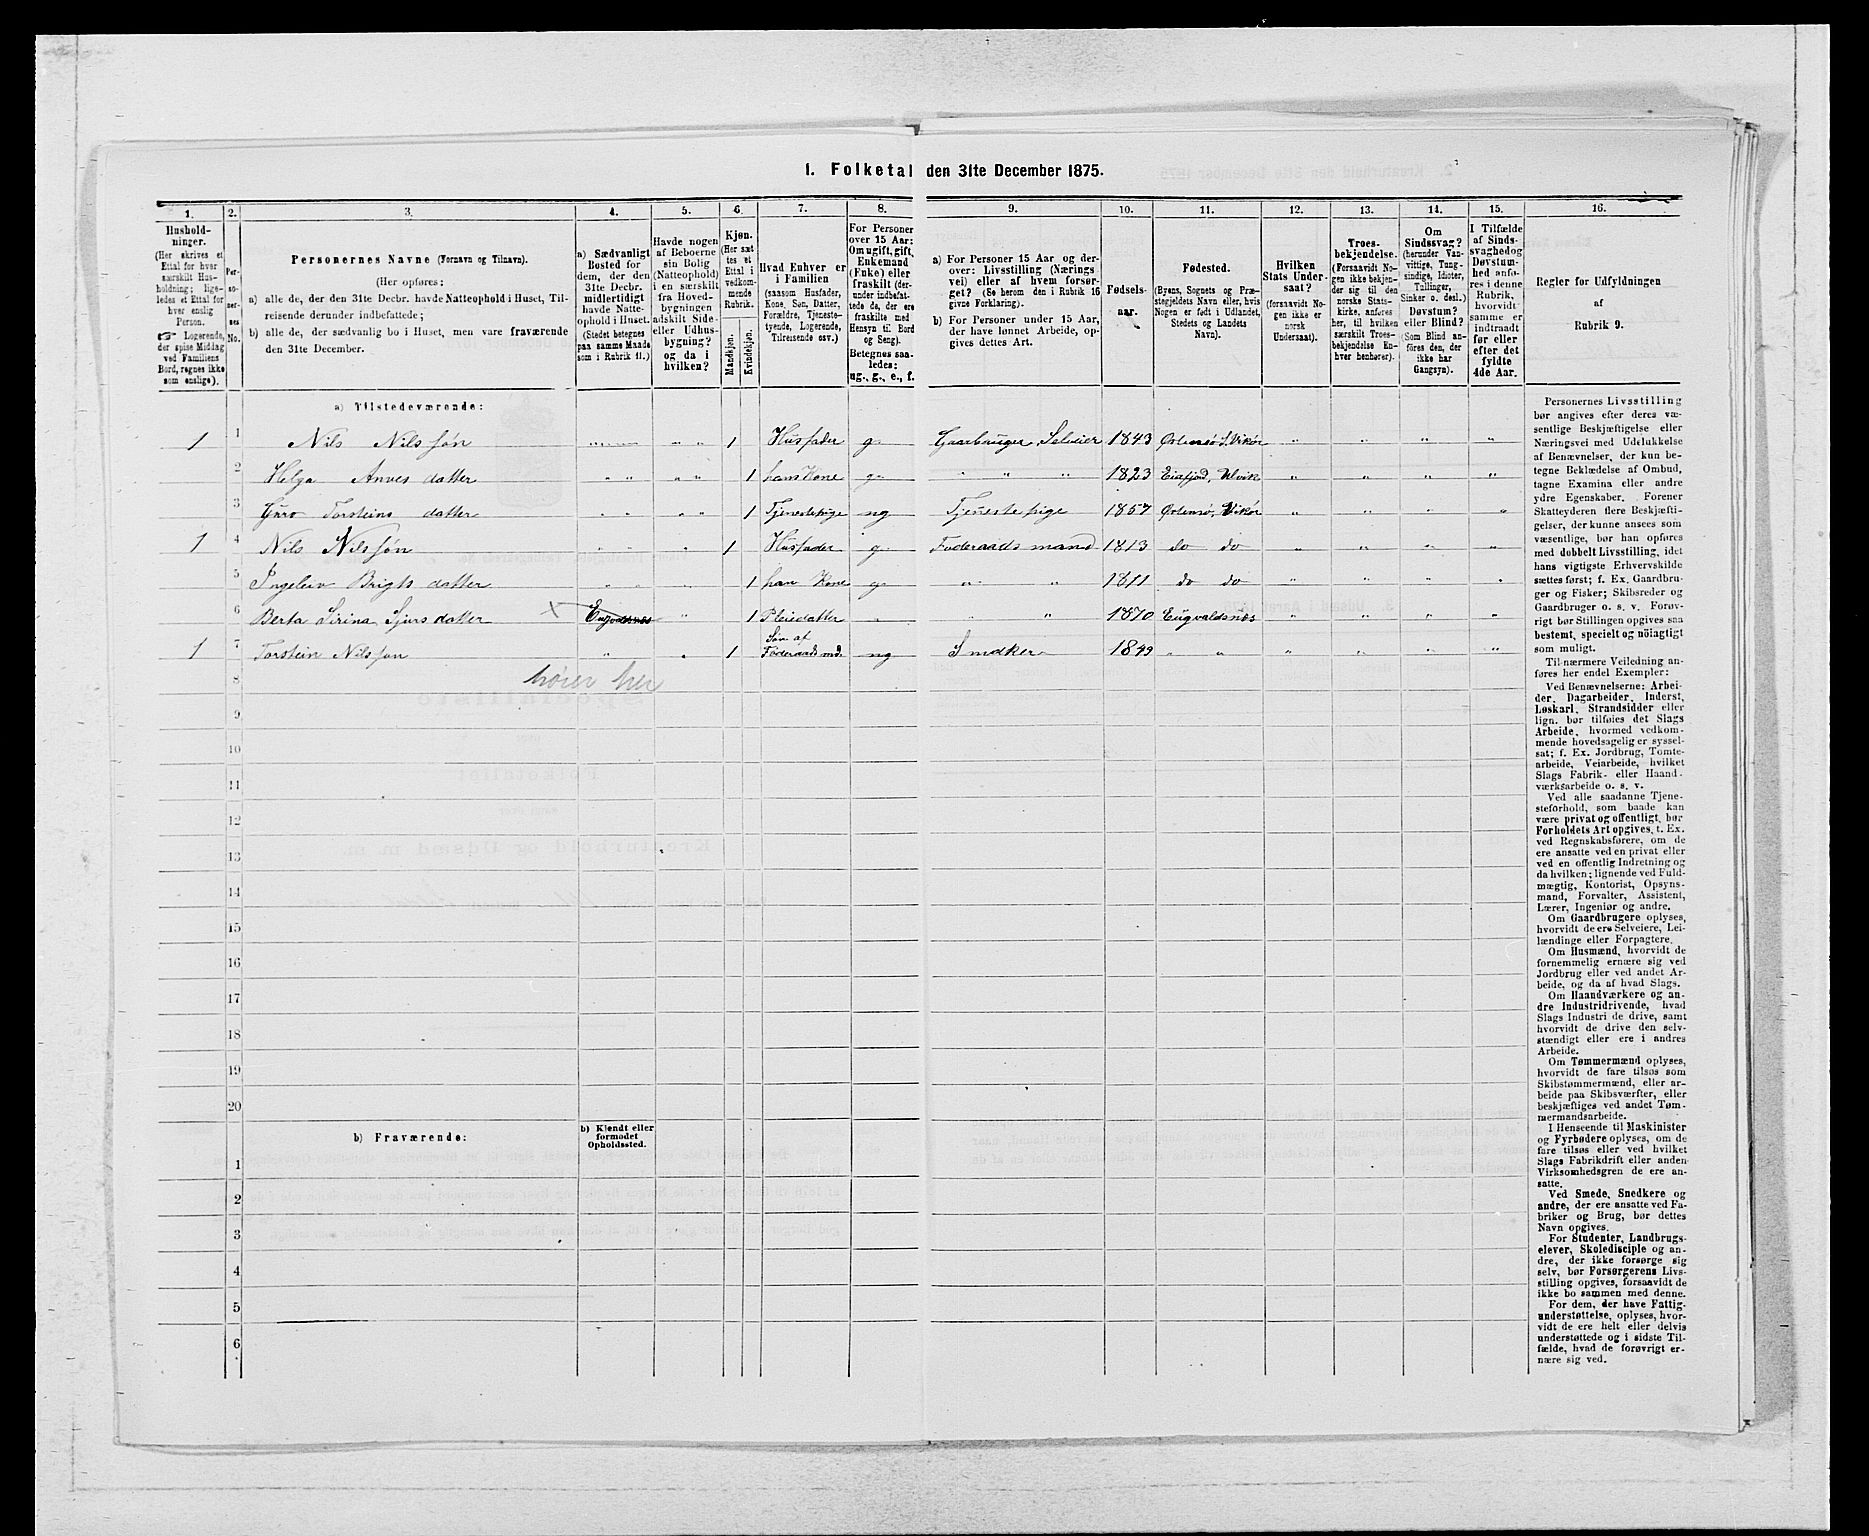 1. Folketal den 31te December 1875.
1.
2.
3.
4.
5.
6.
7.
8.
9.
10.
11.
12.
13.
14.
15.
16.
Hushold-
ninger.
(Her skrives et
Ettal for hver
særskilt Hus-
holdning; lige-
ledes et Ettal for
hver enslig
Person.
☞ Logerende,
der spise Middag
ved Familiens
Bord, regnes ikke
som enslige).
Per-
so-
ner-
nes
No.
Personernes Navne (Fornavn og Tilnavn).
(Her opføres:
a) alle de, der den 31te Decbr. havde Natteophold i Huset, Til-
reisende derunder indbefattede;
b) alle de, der sædvanlig bo i Huset, men vare fraværende
den 31te December.
a) Sædvanligt
Bosted for
dem, der den
31te Decbr.
midlertidigt
havde Natte-
ophold i Huset.
(Stedet betegnes
paa samme Maade
som i Rubrik 11.)
Havde nogen
af Beboerne
sin Bolig
(Natteophold)
i en særskilt
fra Hoved-
bygningen
adskilt Side-
eller Udhus-
bygning?
og da i
hvilken?
Kjøn.
(Her sæt-
tes et
Ettal i
vedkom-
mende
Rubrik.
Mandkjøn.
Kvindekjøn.
Hvad Enhver er
i Familien
(saasom Husfader,
Kone, Søn, Datter,
Forældre, Tjeneste-
tyende, Logerende,
Tilreisende osv.)
For Personer
over 15 Aar:
Om ugift, gift,
Enkemand
(Enke) eller
fraskilt (der-
under indbefat-
tede de, der ere
fraskilte med
Hensyn til Bord
og Seng).
Betegnes saa-
ledes:
ug., g., e., f.
a) For Personer 15 Aar og der-
over: Livsstilling (Nærings-
vei) eller af hvem forsør-
get? (Se herom den i Rubrik 16
givne Forklaring).
b) For Personer under 15 Aar,
der have lønnet Arbeide, op-
gives dettes Art.
Fødsels-
aar.
Fødested.
(Byens, Sognets og Præ-
stegjeldets Navn eller, hvis
Nogen er født i Udlandet,
Stedets og Landets
Navn).
Hvilken
Stats Under-
saat?
(forsaavidt No-
gen ikke er
norsk
Undersaat).
Troes-
bekjendelse.
(Forsaavidt No-
gen ikke bekjen-
der sig til den
norske Stats-
kirke, anføres
her, til hvilken
særskilt Troes-
bekjendelse En-
hver henhører).
Om
Sindssvag?
(herunder Van-
vittige, Tung-
sindige, Idioter,
Tullinger,
Sinker o. desl.)
Døvstum?
eller Blind?
(Som Blind an-
føres den, der
ikke har
Gangsyn).
I Tilfælde
af Sinds-
svaghed og
Døvstum-
hed anfø-
res i denne
Rubrik,
hvorvidt
samme er
indtraadt
før eller
efter det
fyldte
4de Aar.
Regler for Udfyldningen
af
Rubrik 9.
a) Tilstedeværende:
1 1 Nils Nilssøn 1 Husfader g. Gaarbruger Selveier 1843 Østensø S. Vikør
2 Helga Anves datter 1 hans Kone g. 1823 Eidfjod, Ulvik
3 Guro Torsteins datter 1 Tjenestepige ug Tjenestepige 1857 Østensø, Vikør
1 4 Nils Nilssøn 1 Husfader g. Føderaads mand 1813 do do
5 Ingeleiv Brigts datter 1 han Kone g. 1811 do do
6 Berta Sirina Sjurs datter 1 Pleiedatter 1870 Eugvaldsnæs
1 7 Torstein Nilsson 1 Søn af Føderaads md. ug Snedker 1849
hører her
8
9
10
11
12
13
14
15
16
17
18
19
20
b) Fraværende:
b) Kjendt eller
formodet
Opholdssted.
1
2
3
4
5
6
Personernes Livsstilling
bør angives efter deres væ-
sentlige Beskjæftigelse eller
Næringsvei med Udelukkelse
af Benævnelser, der kun be-
tegne Beklædelse af Ombud,
tagne Examina eller andre
ydre Egenskaber. Forener
Skatteyderen flere Beskjæfti-
gelser, der kunne ansees som
væsentlige, bør han opføres
med dobbelt Livsstilling, idet
hans vigtigste Erhvervskilde
sættes først; f. Ex. Gaardbru-
ger og Fisker; Skibsreder og
Gaardbruger o. s. v. Forøv-
rigt bør Stillingen opgives saa
bestemt, specielt og nøiagtigt
som muligt.
Til nærmere Veiledning an-
føres her endel Exempler:
Ved Benævnelserne: Arbei-
der, Dagarbeider, Inderst,
Løskarl, Strandsidder eller
lign. bør tilføies det Slags
Arbeide, hvormed vedkom-
mende hovedsagelig er syssel-
sat; f. Ex. Jordbrug, Tomte-
arbeide, Veiarbeide, hvilket
Slags Fabrik- eller Haand-
værksarbeide o. s. v.
Ved alle saadanne Tjene-
steforhold, som baade kan
være privat og offentligt, bør
Forholdets Art opgives, t. Ex.
ved Regnskabsførere, om de
ere ansatte ved en privat eller
ved en offentlig Indretning og
da hvilken; lignende ved Fuld-
mægtig, Kontorist, Opsyns-
mand, Forvalter, Assistent,
Lærer, Ingeniør og andre.
Om Gaardbrugere oplyses,
hvorvidt de ere Selveiere, Lei-
lændinge eller Forpagtere.
Om Husmænd, hvorvidt de
fornemmelig ernære sig ved
Jordbrug eller ved andet Ar-
beide, og da af hvad Slags.
Om Haandværkere og an-
dre Industridrivende, hvad
Slags Industri de drive, samt
hvorvidt de drive den selv-
stændigt eller ere i andres
Arbeide.
Om Tømmermænd oplyses,
hvorvidt de fare tilsøs som
Skibstømmermænd, eller ar-
beide paa Skibsværfter, eller
beskjæftiges ved andet Tøm-
mermandsarbeide.
I Henseende til Maskinister
og Fyrbødere oplyses, om de
fare tilsøs eller ved hvilket
Slags Fabrikdrift eller anden
Virksomhedsgren de ere an-
satte.
Ved Smede, Snedkere og
andre, der ere ansatte ved Fa-
briker og Brug, bør dettes
Navn opgives.
For Studenter, Landbrugs-
elever, Skoledisciple og an-
dre, der ikke forsørge sig
selv, bør Forsørgerens Livs-
stilling opgives, forsaavidt de
ikke bo sammen med denne.
For dem, der have Fattig-
understøttelse, oplyses, hvor-
vidt de ere helt eller delvis
understøttede og i sidste Til-
fælde, hvad de forøvrigt er-
nære sig ved.